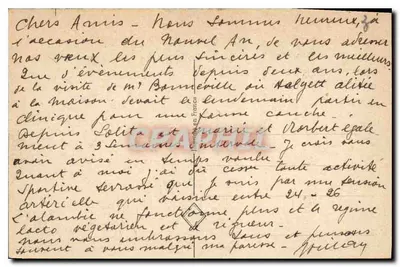 Chers Amis - Nous sommes heureux, à
l'occasion du Nouvel An, de vous adresser
nos vœux les plus sincères et les meilleurs.
Que d'évènements depuis deux ans, lors
de la visite de Mr Bonneville où alitée
à la maison devait le lendemain partir en
clinique pour une fausse couche.
Depuis Lolita est mariée et Norbert égale
ment à 3 semaines Je crois vous
avoir avisé en temps voulu.
Quant à moi j'ai dû cesser toute activité
sportive terrassé que je suis par ma tension
artérielle qui varie entre 24 - 26
L'alambic ne fonctionne plus et le régime
lacto végétarien est de rigueur.
Nous vous embrassons tous et pensons
souvent à vous malgré ma paresse -